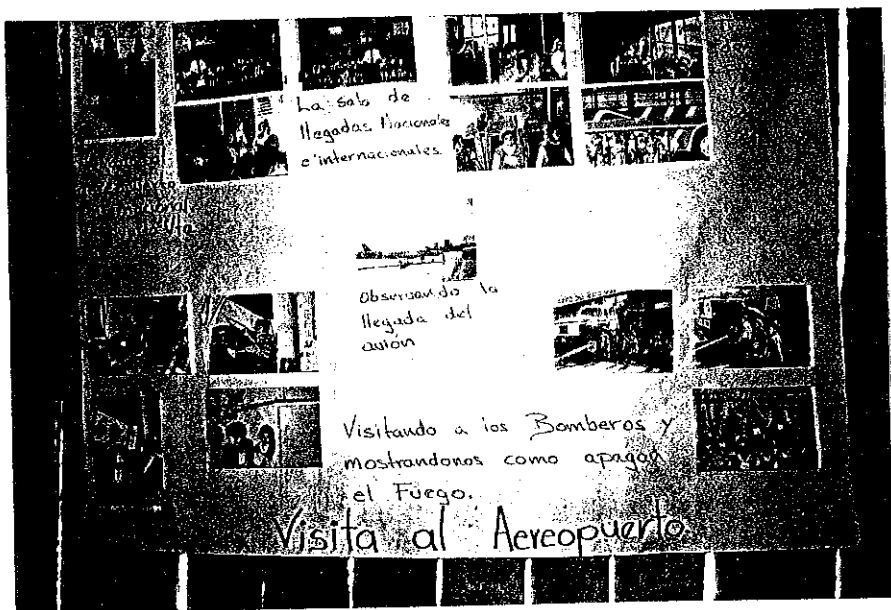 La sala de
llegadas Nacionales
e internacionales.
Observando la
llegada del
avión
Visitando a los Bomberos y
mostrandonos como apagan
el Fuego.
Visita al Aereopuerto